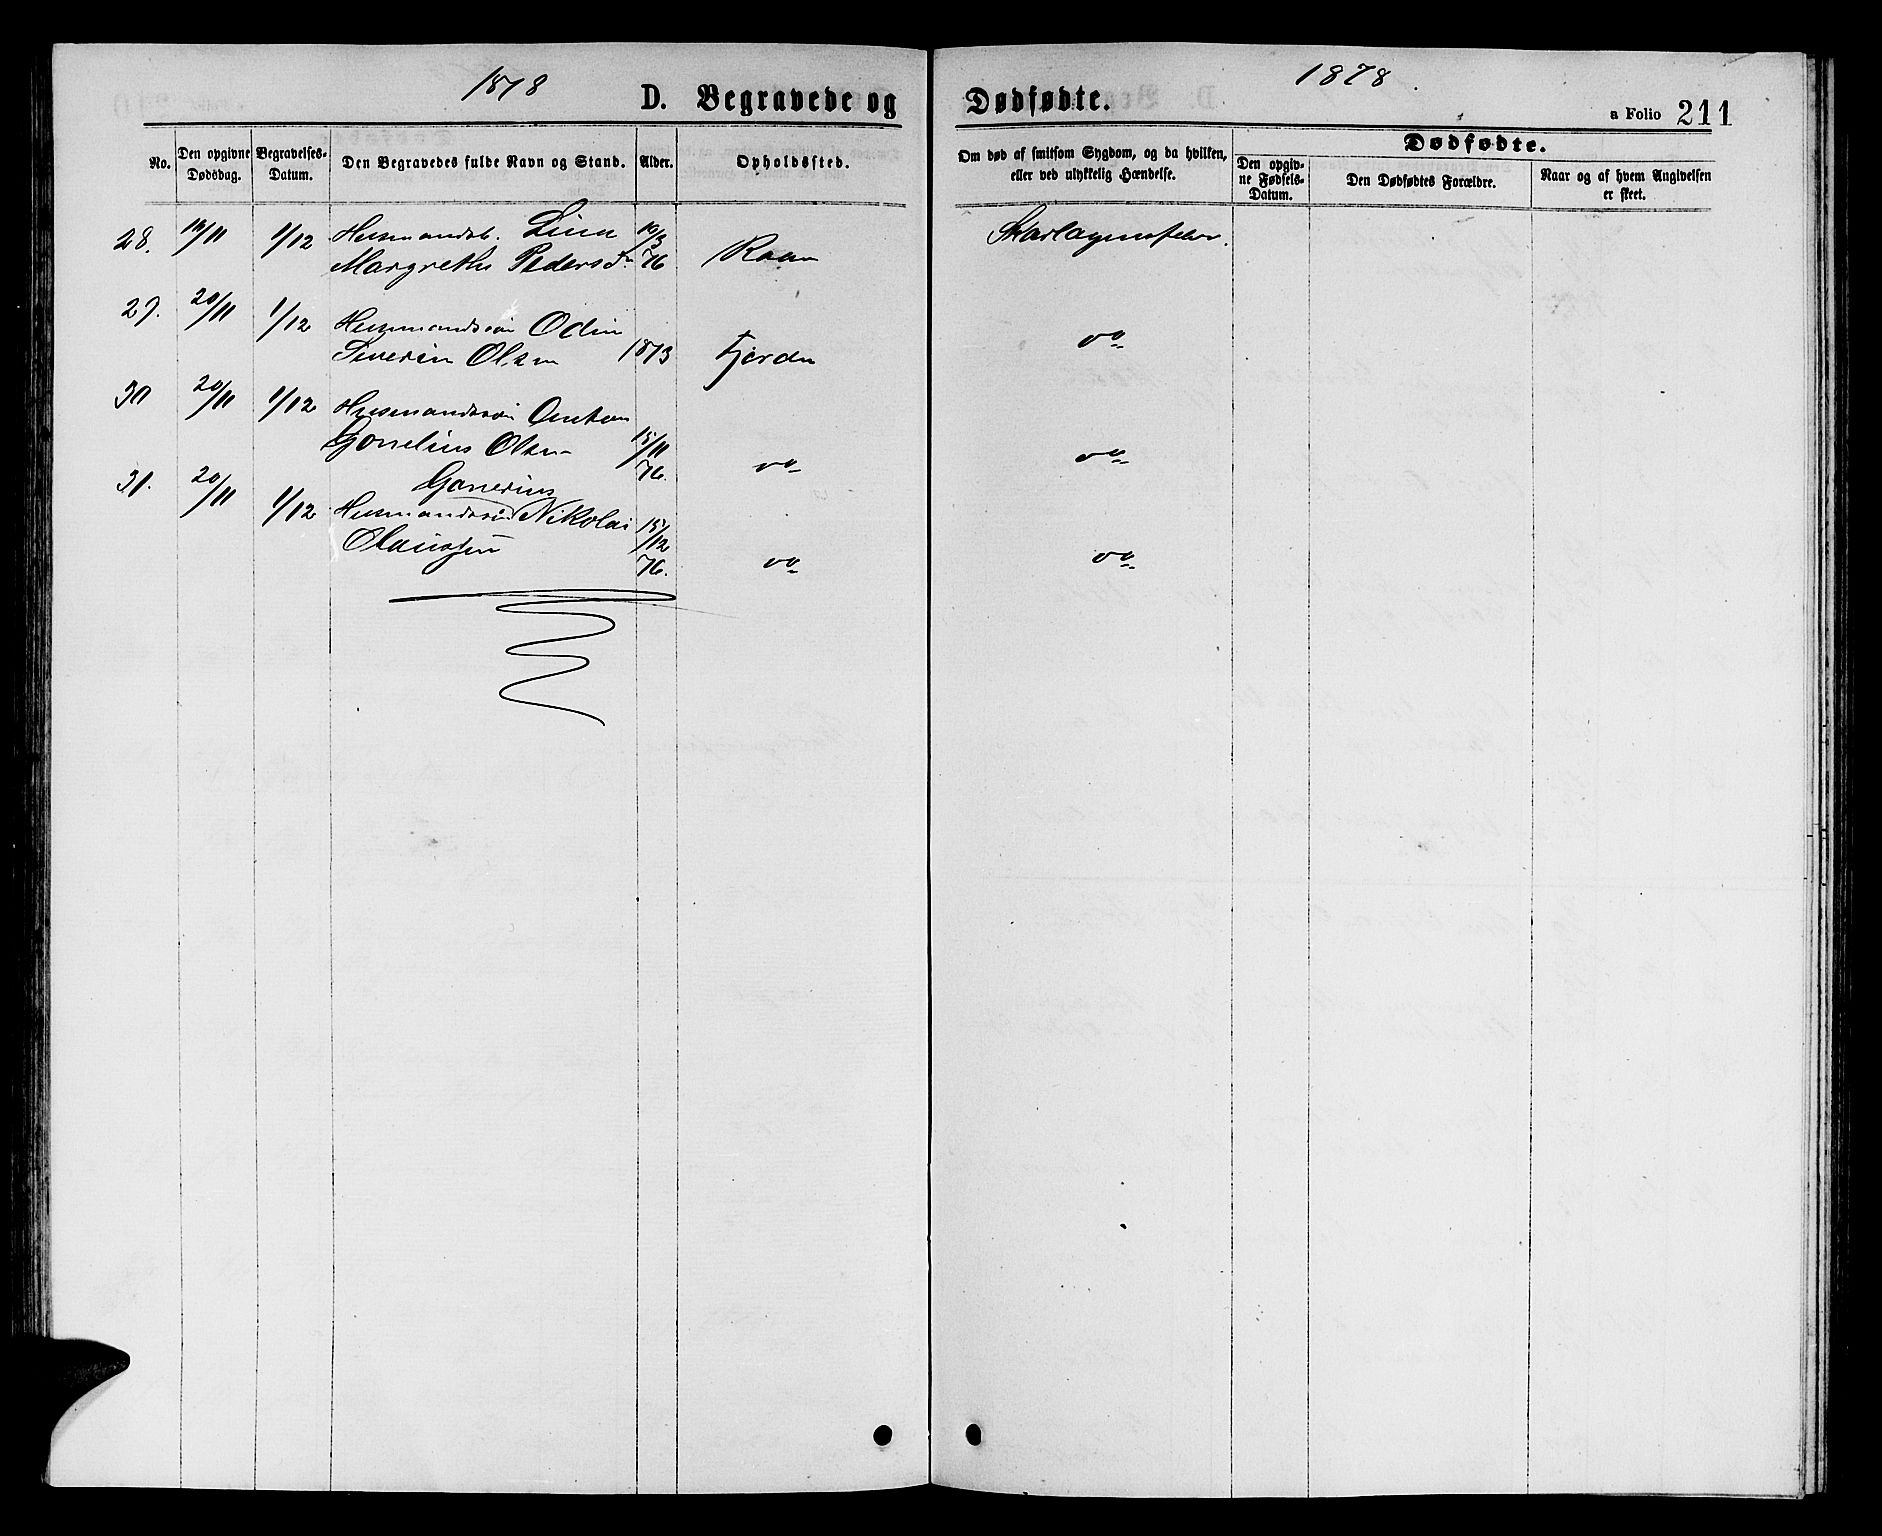 1878
D. Begravede og
No.
Den opgivne Dødsdag.
Begravelses-Datum.
Den Begravedes fulde Navn og Stand.
Alder.
Opholdssted.
28. /11 1/12 Husmandsb. Lina 10/3
Margrethe Peders D. 76 Raan
29. 20/11 1/12 Husmandssøn Odin
Severin Olsen 1873 Fjorden
30 20/11 1/12 Husmandssøn Anton
Gonelius Olsen 15/11 76. do
31. 20/11 1/12 Gonerius
Husmandssøn Nikolai 15/12
Olaussen 76. do
1878
Dødfødte.
a Folio 211
Om død af smitsom Sygdom, og da hvilken,
eller ved ulykkelig Hændelse.
Dødfødte.
Den opgiv-
ne Fødsels-
Datum.
Den Dødfødtes Forældre.
Naar og af hvem Angivelsen
er skeet.
Skarlagensfeber.
do
do
do